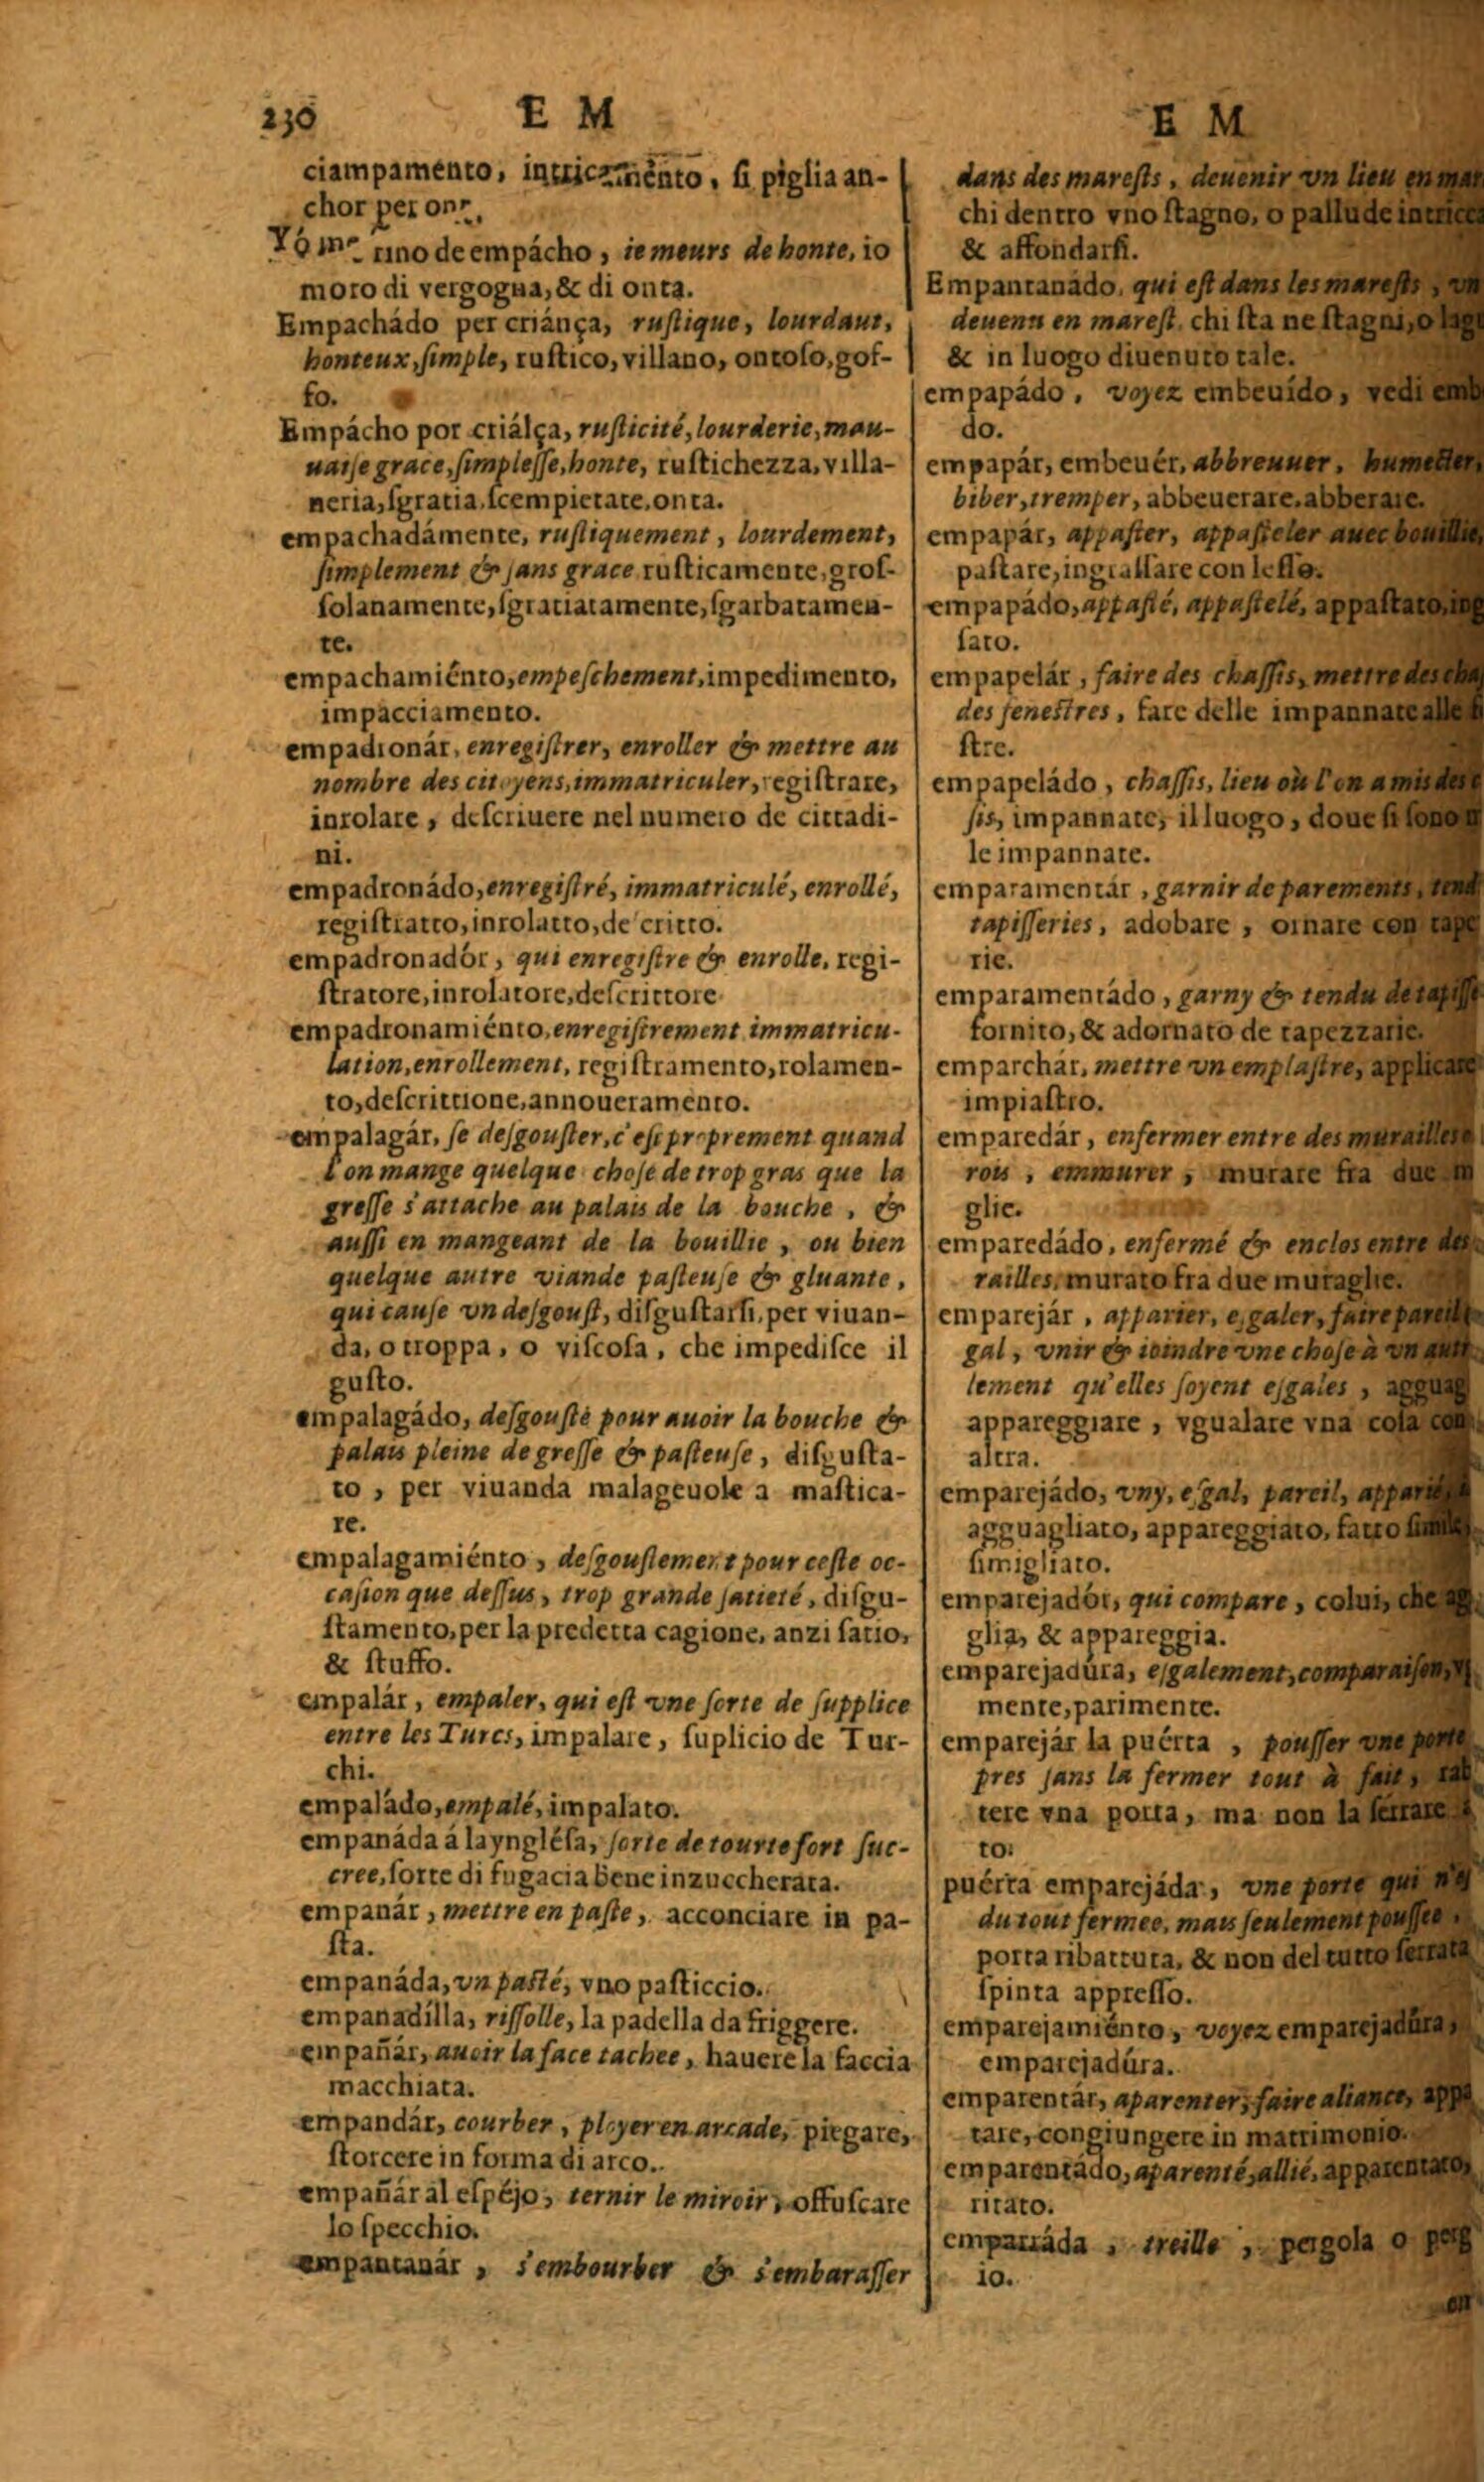 230
E M
ciampamento, intricamento, ſi piglia an-
chor per
Yó rino de empácho, ie meurs de honte, io
moro di vergogna, & di onta.
Empachádo per criánça, ruſtique, lourdaut,
honteux, ſimple, ruſtico, villano, ontoſo, gof-
fo.
Empácho por criálça, ruſticité, lourderie, mau-
uaiſe grace, ſimpleſſe, honte, ruſtichezza, villa-
neria, ſgratia, ſcempietate, onta.
empachadámente, ruſtiquement, lourdement,
ſimplement & ſans grace ruſticamente, groſ-
ſolanamente, ſgratiatamente, ſgarbatamen-
te.
empachamiénto, empeſchement, impedimento,
impacciamento.
empadronár, enregiſtrer, enroller & mettre au
nombre des citoyens, immatriculer, regiſtrare,
inrolare, deſcriuere nel numero de cittadi-
ni.
empadronádo, enregiſtré, immatriculé, enrollé,
regiſtratto, inrolatto, de critto.
empadronadór, qui enregiſtre & enrolle, regi-
ſtratore, inrolatore, deſcrittore
empadronamiénto, enregiſtrement immatricu-
lation, enrollement, regiſtramento, rolamen-
to, deſcrittione, annoueramento.
empalagár, ſe deſgouſter, c'eſt proprement quand
l'on mange quelque choſe de trop gras que la
greſſe s'attache au palais de la bouche, &
auſſi en mangeant de la bouillie, ou bien
quelque autre viande paſteuſe & gluante,
qui cauſe vn deſgouſt, diſguſtarſi, per viuan-
da, o troppa, o viſcoſa, che impediſce il
guſto.
empalagádo, deſgouſté pour auoir la bouche &
palais pleine de greſſe & paſteuſe, diſguſta-
to, per viuanda malageuole a maſtica-
re.
empalagamiénto, deſgouſtement pour ceſte oc-
caſion que deſſus, trop grande ſatieté, diſgu-
ſtamento, per la predetta cagione, anzi ſatio,
& ſtuffo.
empalár, empaler, qui eſt vne ſorte de ſupplice
entre les Turcs, impalare, ſuplicio de Tur-
chi.
empaládo, empalé, impalato.
empanáda á la yngléſa, ſorte de tourte fort ſuc-
cree, ſorte di fugacia bene inzuccherata.
empanár, mettre en paſte, acconciare in pa-
ſta.
empanáda, vn paſté, vno paſticcio.
empanadílla, riſſolle, la padella da friggere.
empañár, auoir la face tachee, hauere la faccia
macchiata.
empandár, courber, ployer en arcade, piegare,
ſtorcere in forma di arco.
empañár al eſpéjo, ternir le miroir, offuſcare
lo ſpecchio.
empantanár, s'embourber & s'embaraſſer
E M
dans des mareſts, deuenir vn lieu en mar
chi dentro vno ſtagno, o pallude intricc
& affondarſi.
Empantanádo, qui eſt dans les mareſts, vn
deuenu en mareſt, chi ſta ne ſtagni, o lag
& in luogo diuenuto tale.
empapádo, voyez embeuído, vedi emb
do.
empapár, embeuér, abbreuuer, humecter,
biber, tremper, abbeuerare, abberare.
empapár, appaſter, appaſteler auec bouillie,
paſtare, ingraſſare con leſſo.
empapádo, appaſté, appaſtelé, appaſtato, ing
ſato.
empapelár, faire des chaſſis, mettre des cha
des feneſtres, fare delle impannate alle fi
ſtre.
empapeládo, chaſſis, lieu où l'on a mis des c
ſis, impannate, il luogo, doue ſi ſono
le impannate.
emparamentár, garnir de parements, tend
tapiſſeries, adobare, ornare con tape
rie.
emparamentádo, garny & tendu de tapiſſe
fornito, & adornato de tapezzarie.
emparchár, mettre vn emplaſtre, applicare
impiaſtro.
emparedár, enfermer entre des murailles
rois, emmurer, murare fra due m
glie.
emparedádo, enfermé & enclos entre des
railles, murato fra due muraglie.
emparejár, apparier, eſgaler, faire pareil
gal, vnir & ioindre vne choſe à vn autr
lement qu'elles ſoyent eſgales, agguag
appareggiare, vgualare vna coſa con
altra.
emparejádo, vny, eſgal, pareil, apparié,
agguagliato, appareggiato, fatto ſimile,
ſimigliato.
emparejadór, qui compare, colui, che ag
glia, & appareggia.
emparejadúra, eſgalement, comparaiſon, v
mente, parimente.
emparejár la puérta, pouſſer vne porte
pres ſans la fermer tout à fait, rab
tere vna porta, ma non la ſerrare
to.
puérta emparejáda, vne porte qui n'eſ
du tout fermee, mais ſeulement pouſſee,
porta ribattuta, & non del tutto ſerrata
ſpinta appreſſo.
emparejamiénto, voyez emparejadúra,
emparejadúra.
emparentár, aparenter, faire aliance, appa
tare, congiungere in matrimonio.
emparentádo, aparenté, allié, apparentato,
ritato.
emparráda, treille, pergola o perg
io.